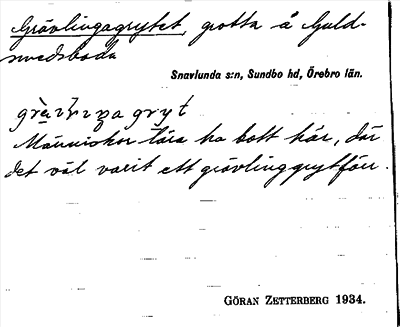 Grävlingagrytet, grotta å Guld-
smedsboda
Snavlunda s:n, Sundbo hd, Örebro län.
Människor lära ha bott här, där
det väl varit ett grävlinggryt förr.
GÖRAN ZETTERBERG 1934.